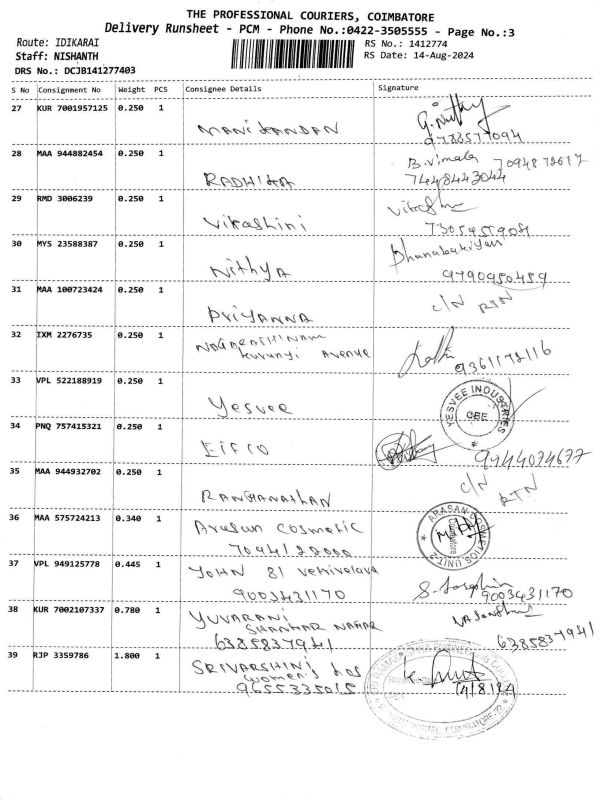 THE PROFESSIONAL COURIERS, COIMBATORE
Delivery Runsheet - PCM - Phone No.:0422-3505555 - Page No.:3
Route: IDIKARAI RS No.: 1412774
Staff: NISHANTH RS Date: 14-Aug-2024
DRS No.: DCJB141277403
S No Consignment No Weight PCS Consignee Details Signature
27 KUR 7001957125 0.250 1
MANIKANDAN
28 MAA 944882454 0.250 1 B.Vimala 7094872617
RADHIKA 7448443044
29 RMD 3006239 0.250 1
Vikashini
30 MYS 23588387 0.250 1
Nithya 9790950459
31 MAA 100723424 0.250 1 C/N RTN
PRIYANNA
32 IXM 2276735 0.250 1
Kurunji Avenue 9361172116
33 VPL 522188919 0.250 1
Yesvee YESVEE INDUSTRIES CBE
34 PNQ 757415321 0.250 1
EIFCO 9444074677
35 MAA 944932702 0.250 1 C/N RTN
RANGANATHAN
36 MAA 575724213 0.340 1 Arasan Cosmetic ARASAN COSMETICS UNIT-2 Coimbatore
37 VPL 949125778 0.445 1 JOHN 81
9003431170 9003431170
38 KUR 7002107337 0.780 1 YUVARANI
SHANKAR NAGAR
6385837941 6385837941
39 RJP 3359786 1.800 1 SRIVARSHINI
women's
9655335015 14/8/24